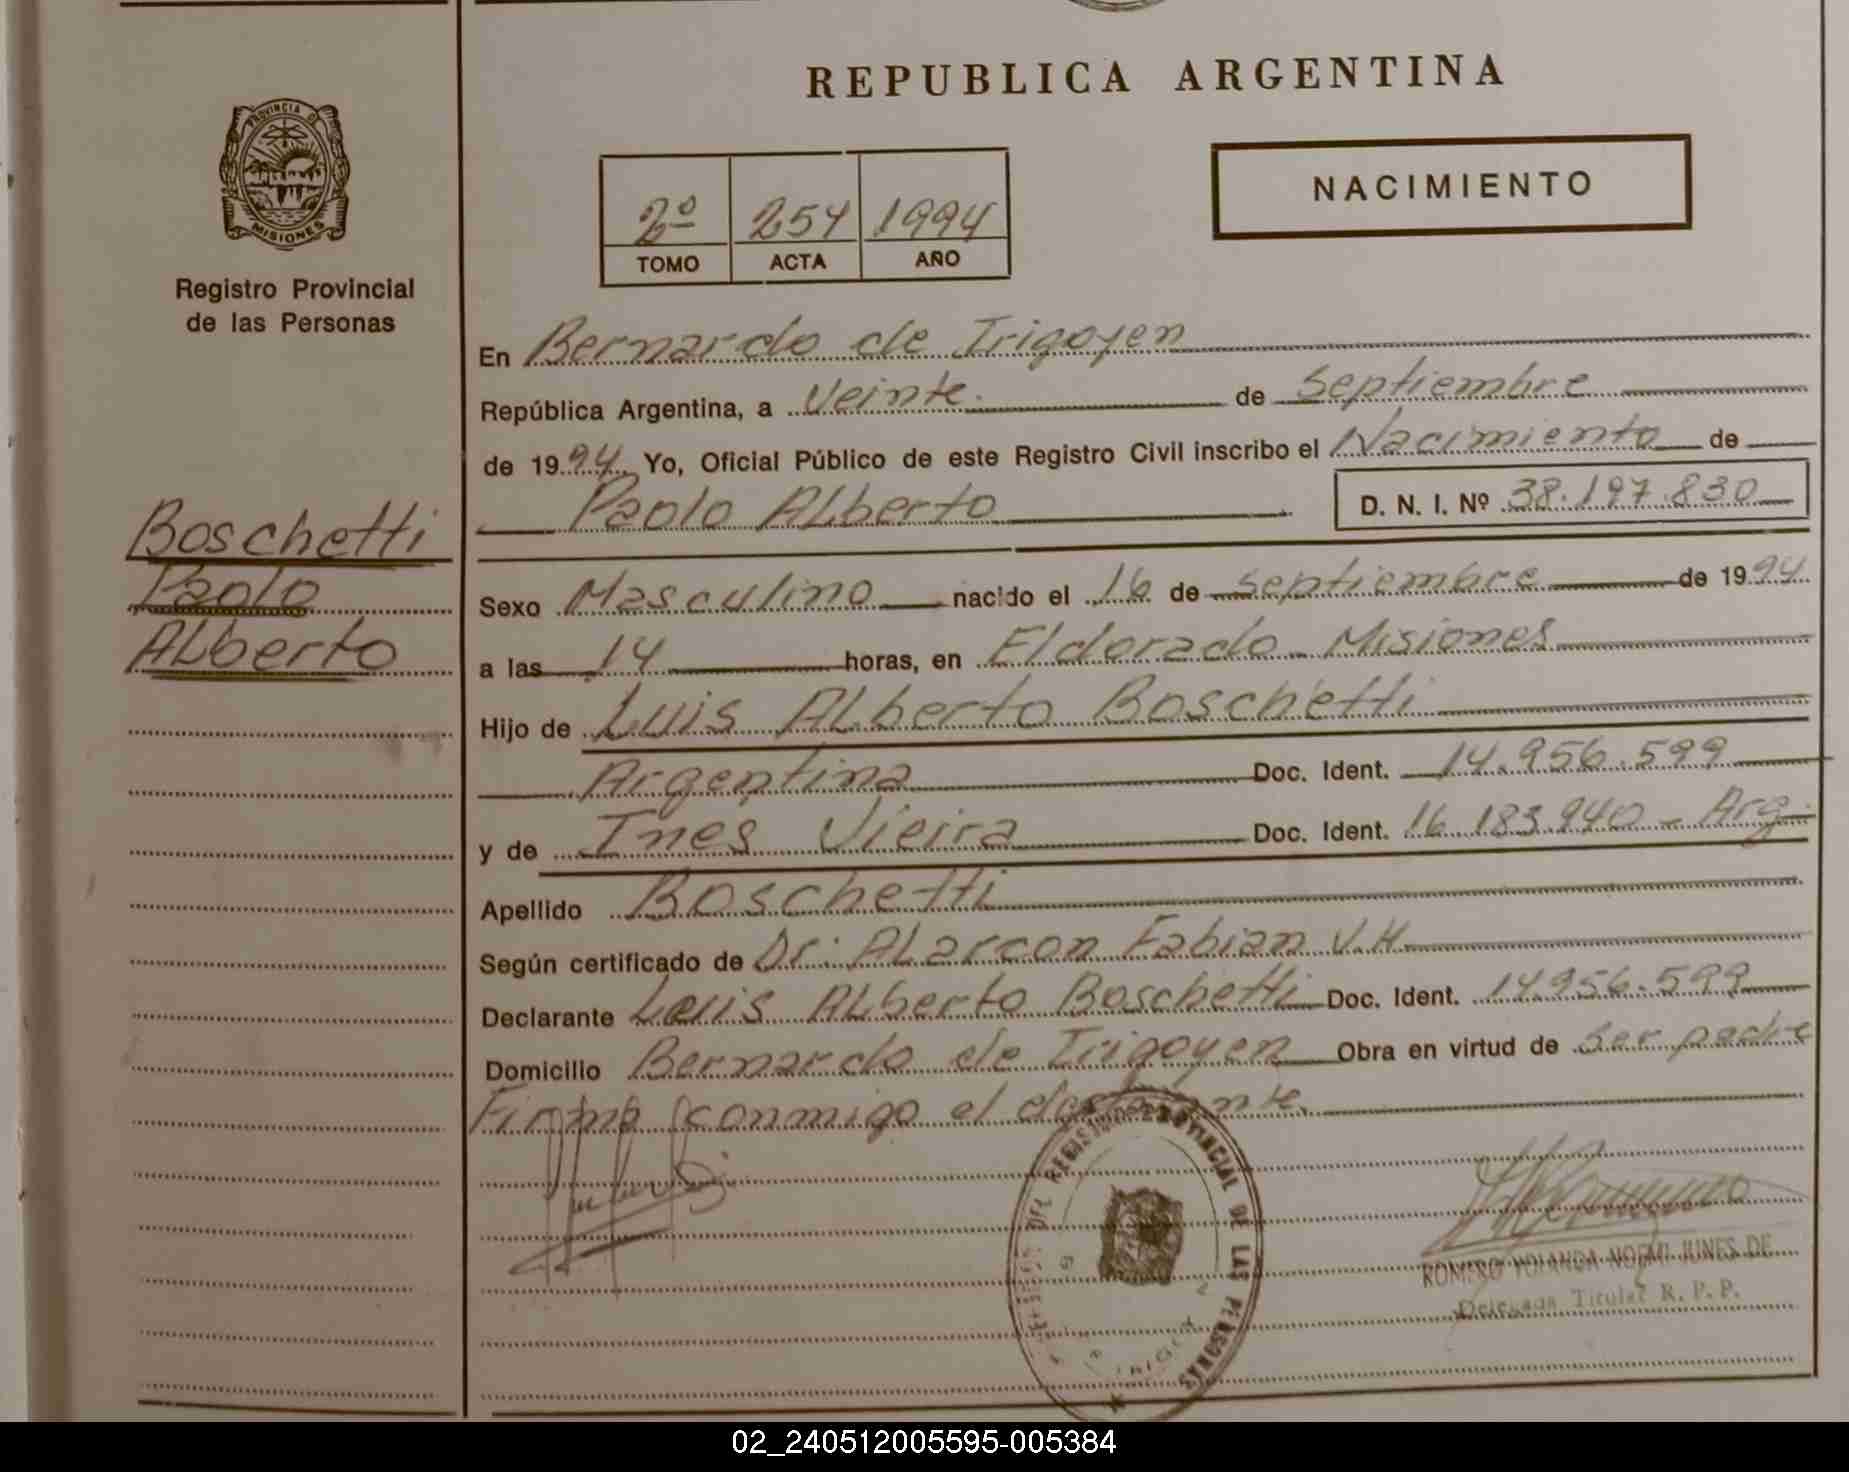 REPUBLICA ARGENTINA
PROVINCIA DE
MISIONES
Registro Provincial
de las Personas
NACIMIENTO
2º 254 1994
TOMO ACTA AÑO
En Bernardo de Irigoyen
República Argentina, a Veinte de Septiembre
de 1994 Yo, Oficial Público de este Registro Civil inscribo el Nacimiento de
Paolo ALberto D. N. I. Nº 38.197.830
Boschetti
Paolo
ALberto
Sexo Masculino nacido el 16 de Septiembre de 1994
a las 14 horas, en Eldorado - Misiones
Hijo de Luis ALberto Boschetti
Argentina Doc. Ident. 14.956.599
y de Ines Vieira Doc. Ident. 16.183.940 - Arg.
Apellido Boschetti
Según certificado de Dr: ALarcon Fabian V.H.
Declarante Luis ALberto Boschetti Doc. Ident. 14.956.599
Domicilio Bernardo de Irigoyen Obra en virtud de Ser padre
Firma conmigo el declarante.
DEL REGISTRO PROVINCIAL DE LAS PERSONAS
ROMERO YOLANDA NOEMI JUNES DE
Delegada Titular R. P. P.
02_240512005595-005384